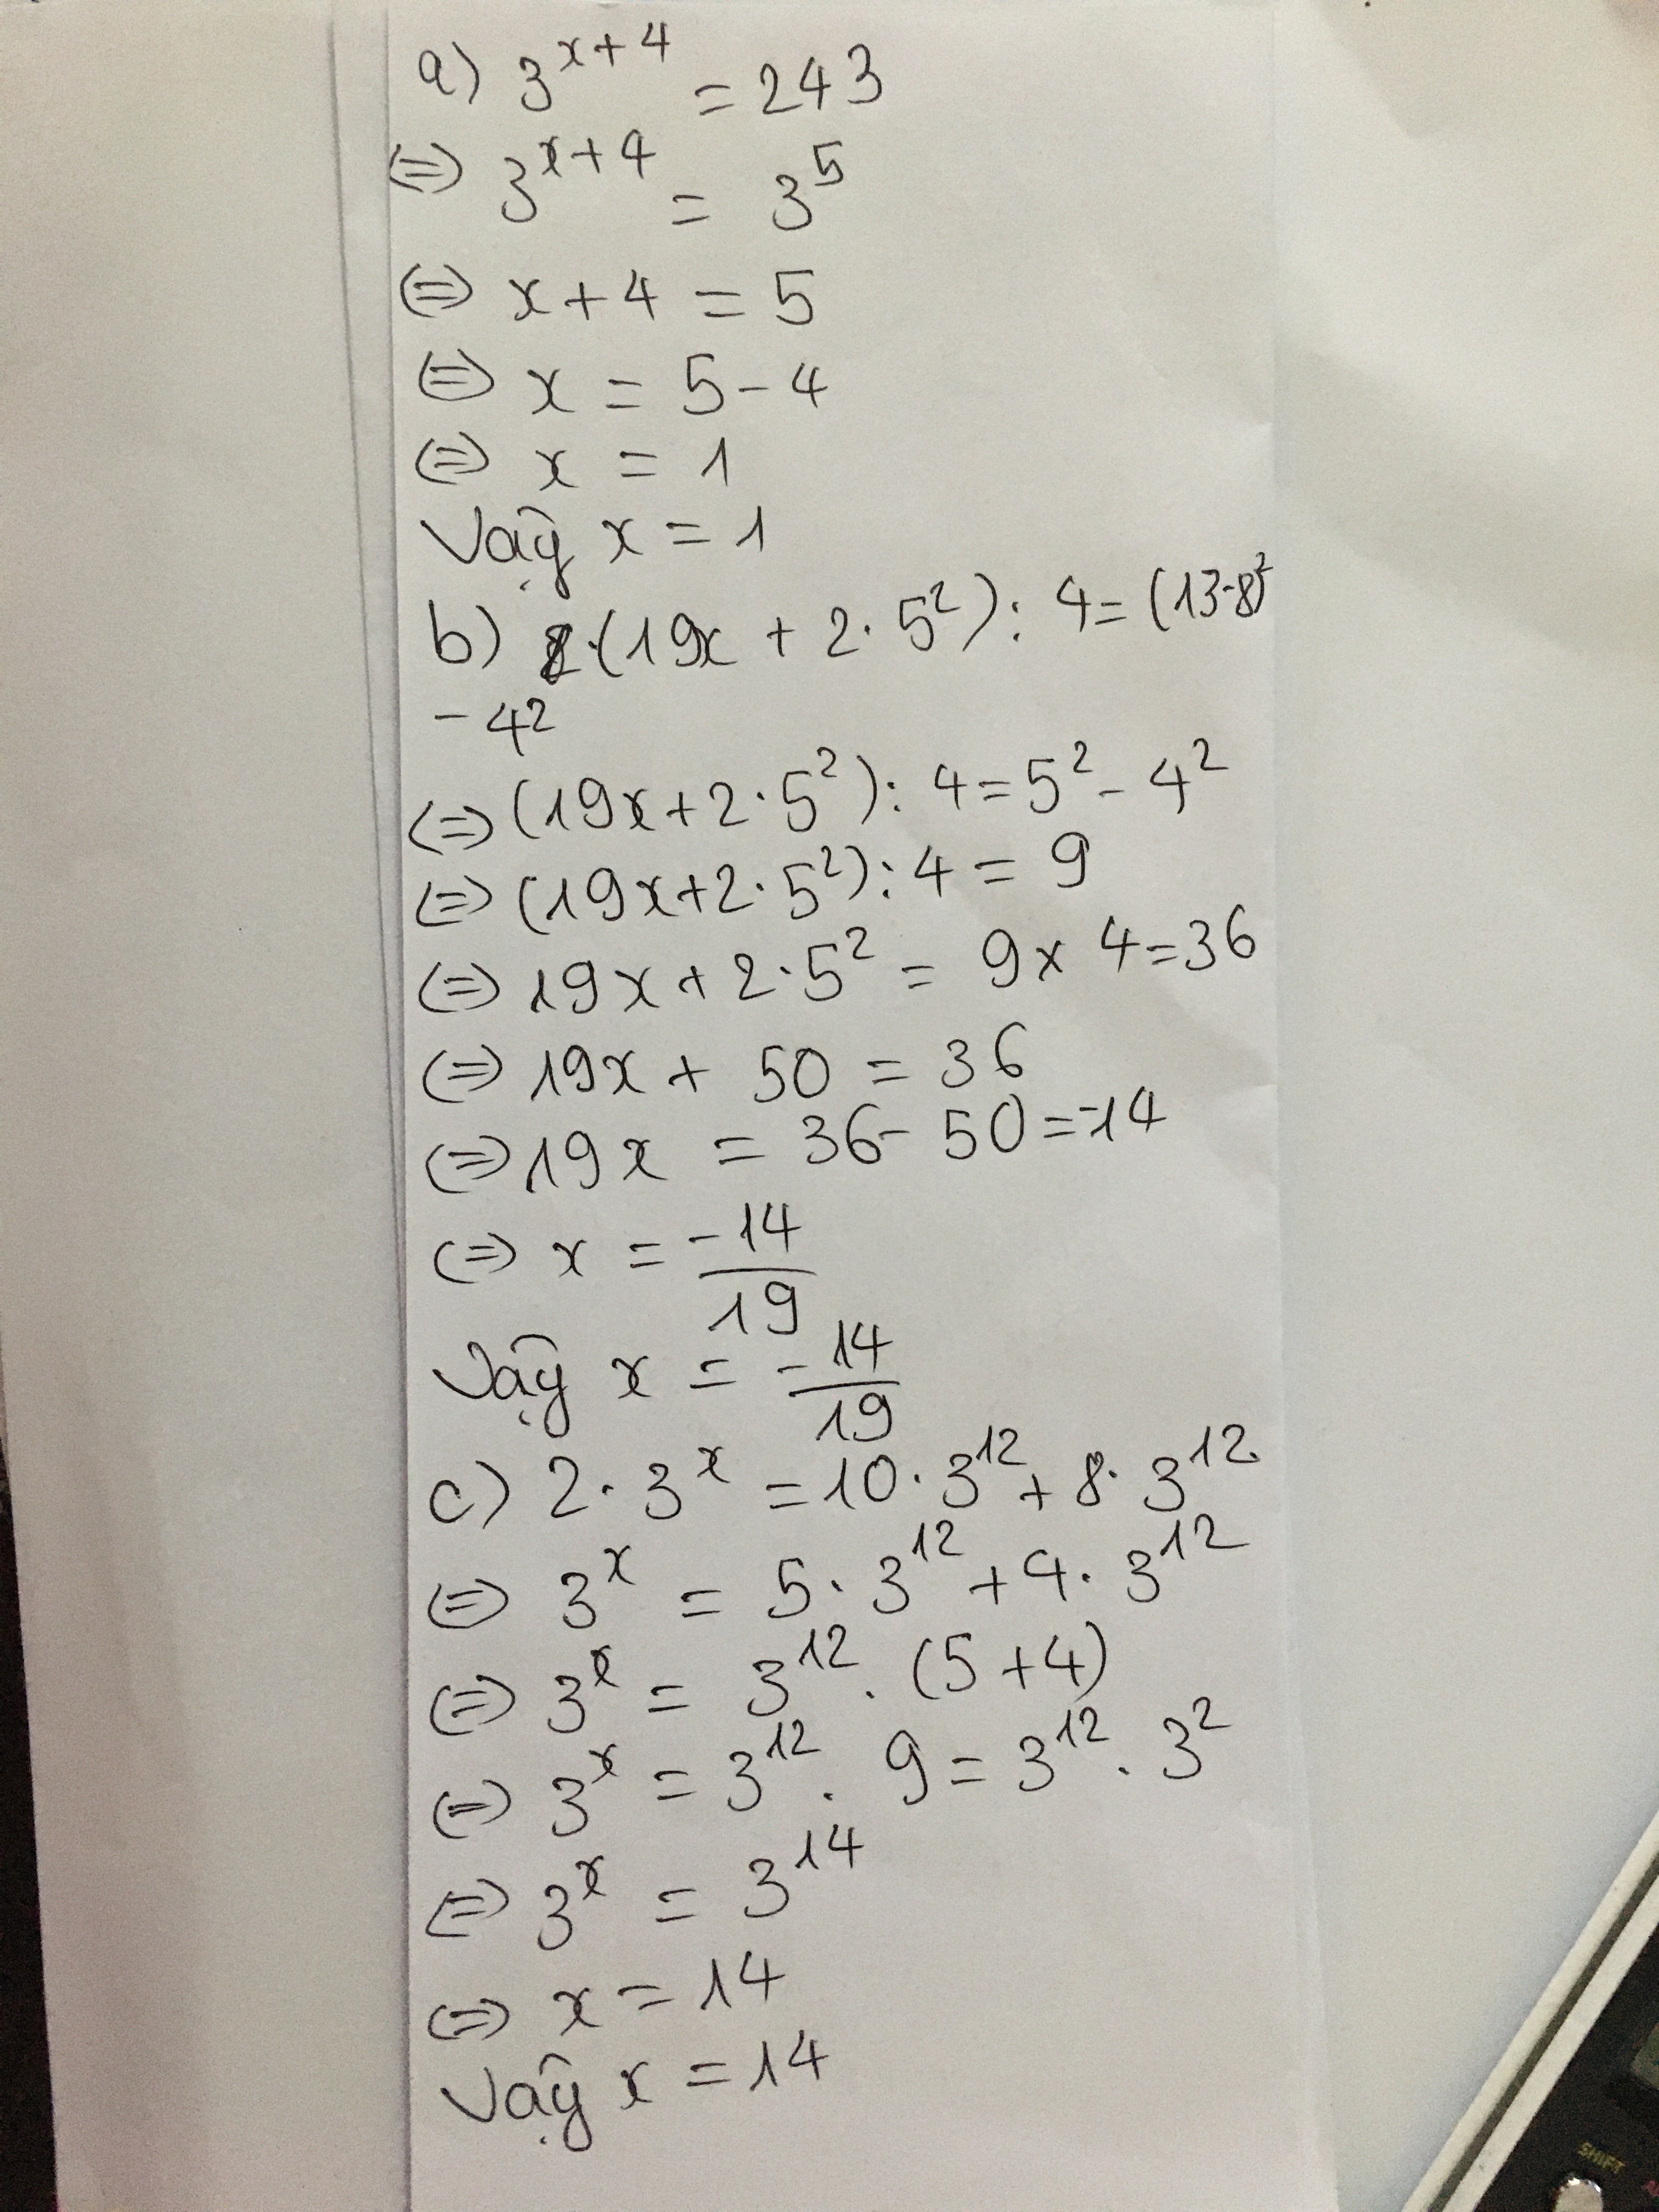 a) 3^{x+4} = 243
(=) 3^{x+4} = 3^5
(=) x + 4 = 5
(=) x = 5 - 4
(=) x = 1
Vậy x = 1
b) (19x + 2 · 5^2) : 4 = (13-8)^2
- 4^2
(=) (19x + 2 · 5^2) : 4 = 5^2 - 4^2
(=) (19x + 2 · 5^2) : 4 = 9
(=) 19x + 2 · 5^2 = 9 x 4 = 36
(=) 19x + 50 = 36
(=) 19x = 36 - 50 = -14
(=) x = \frac{-14}{19}
Vậy x = \frac{-14}{19}
c) 2 · 3^x = 10 · 3^{12} + 8 · 3^{12}
(=) 3^x = 5 · 3^{12} + 4 · 3^{12}
(=) 3^x = 3^{12} . (5 + 4)
(=) 3^x = 3^{12} . 9 = 3^{12} . 3^2
(=) 3^x = 3^{14}
(=) x = 14
Vậy x = 14
SHIFT